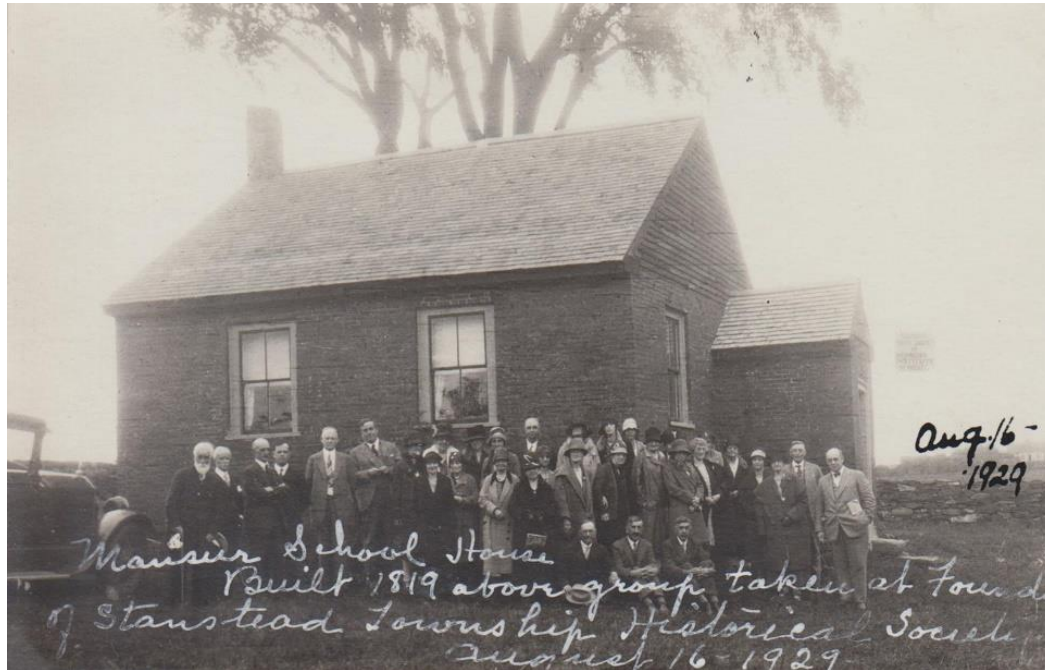 Aug. 16-
1929
Mansur School House
Built 1819 above group taken at Found
of Stanstead Township Historical Society
August 16-1929